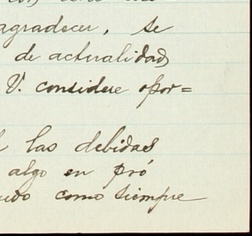 agradecer, se
de actualidad
V. considere opor=
las debidas
algo en pró
como siempre